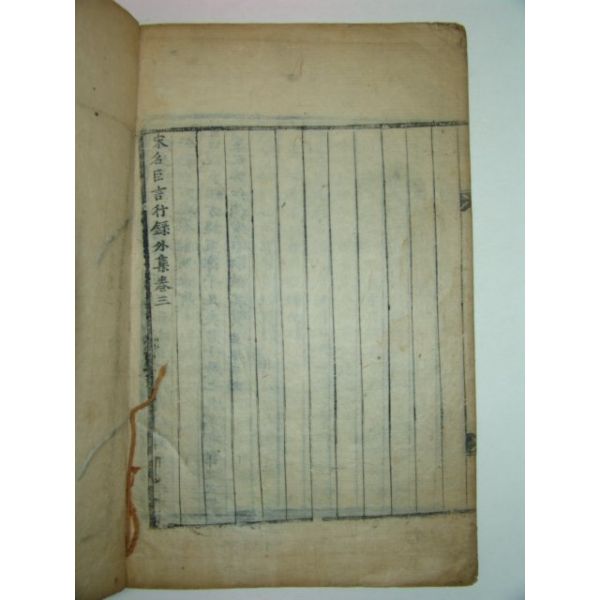 宋名臣言行錄外集卷三